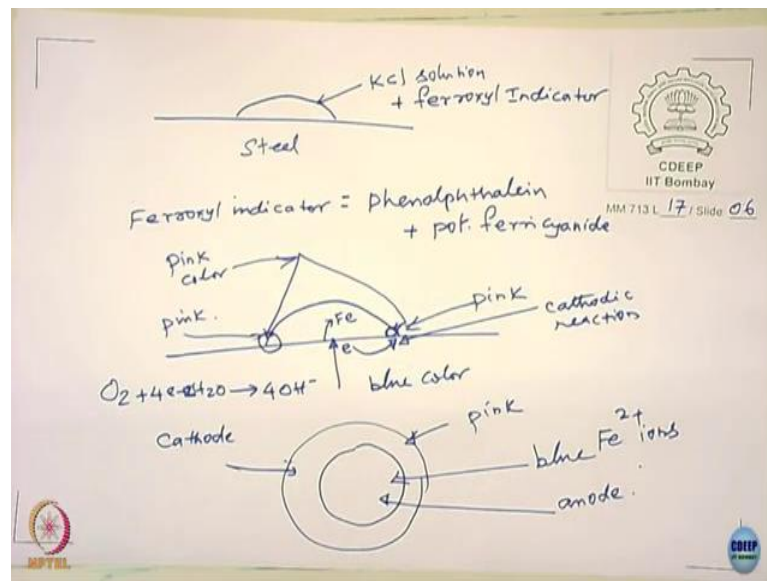 Kcl solution
+ ferroxyl Indicator
Steel
CDEEP
IIT Bombay
MM 713 L 17 / Slide 06
Ferroxyl indicator = phenolphthalein
+ pot. ferricyanide
pink
color
pink.
Fe
e
pink
cathodic
reaction
O2 + 4e + H2O → 4OH-
blue color
Cathode
pink
blue Fe2+ ions
anode.
NPTEL
CDEEP
IIT BOMBAY